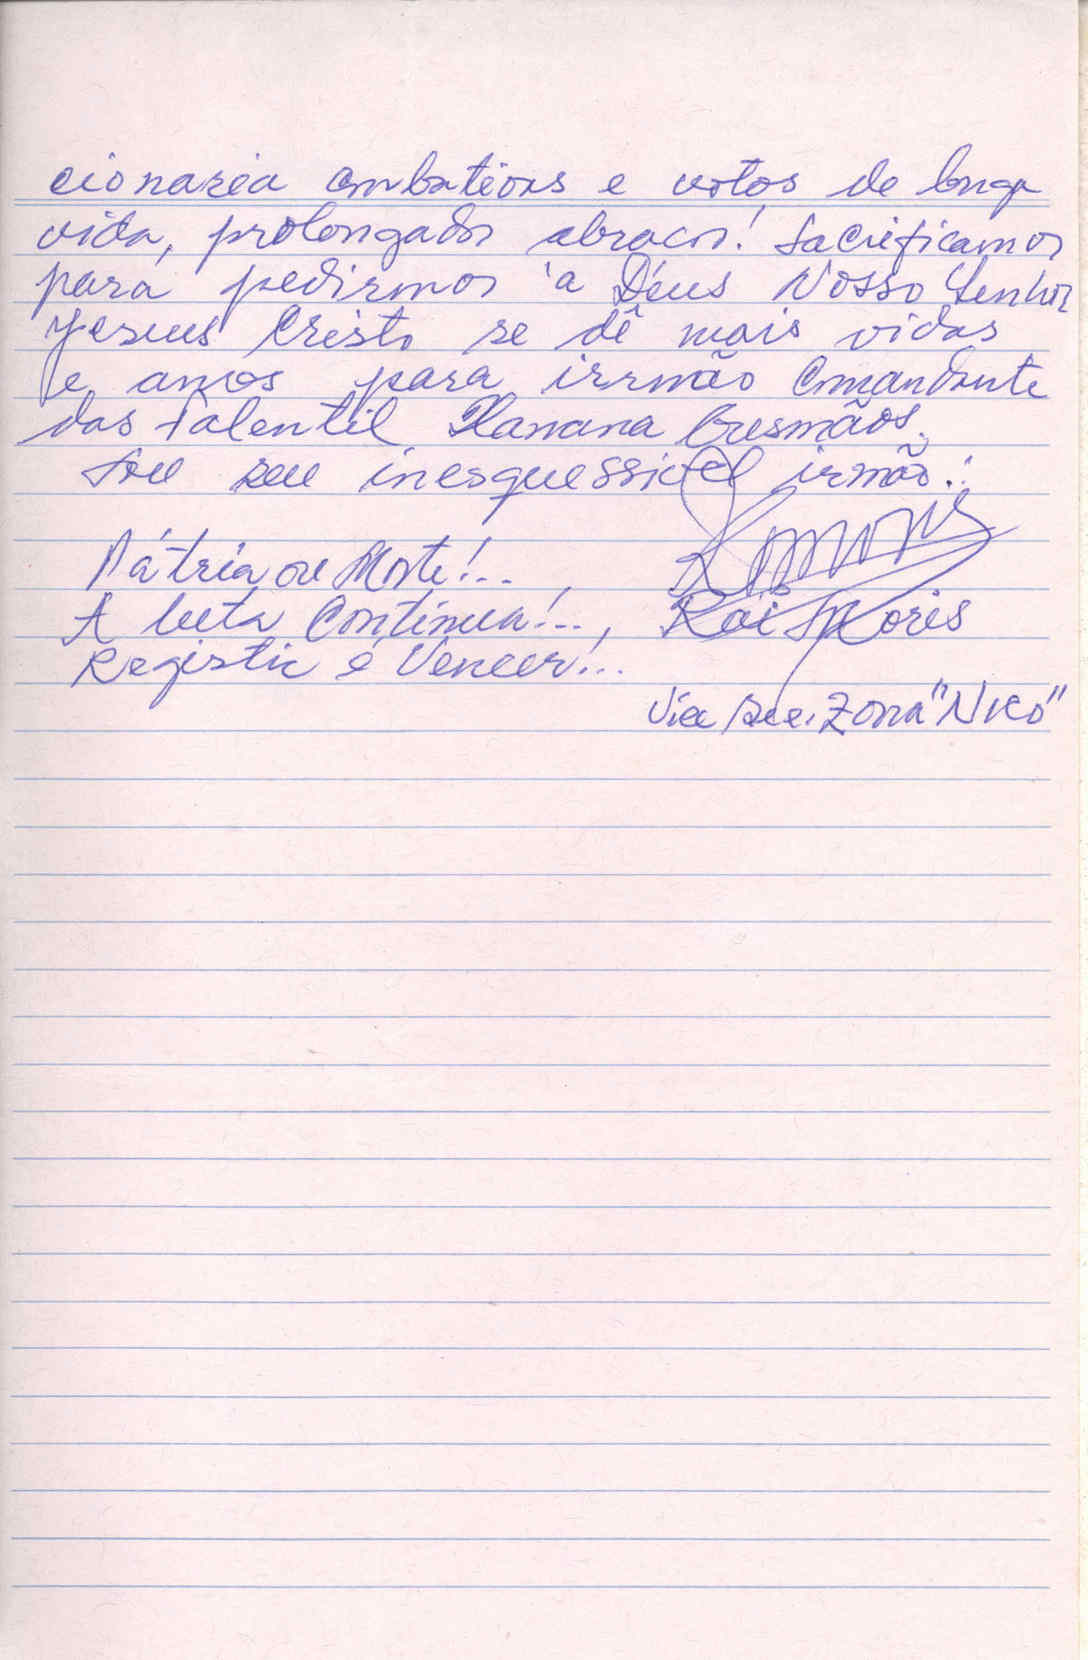 cionaria combativas e votos de longa
vida, prolongados abraços! Sacrificamos
para pedirmos 'a Déus Nosso Senhor
Yesus Cristo se dê mais vidas
e anos para irrmão Comandante
das Falentil Xanana Gusmãos.
Sou seu inesquessivel irmão.:
Pátria ou Morte!..
A luta Continua!..,
Rai Moris
Registir é Vencer!...
Vice Sec. Zona "NRO"